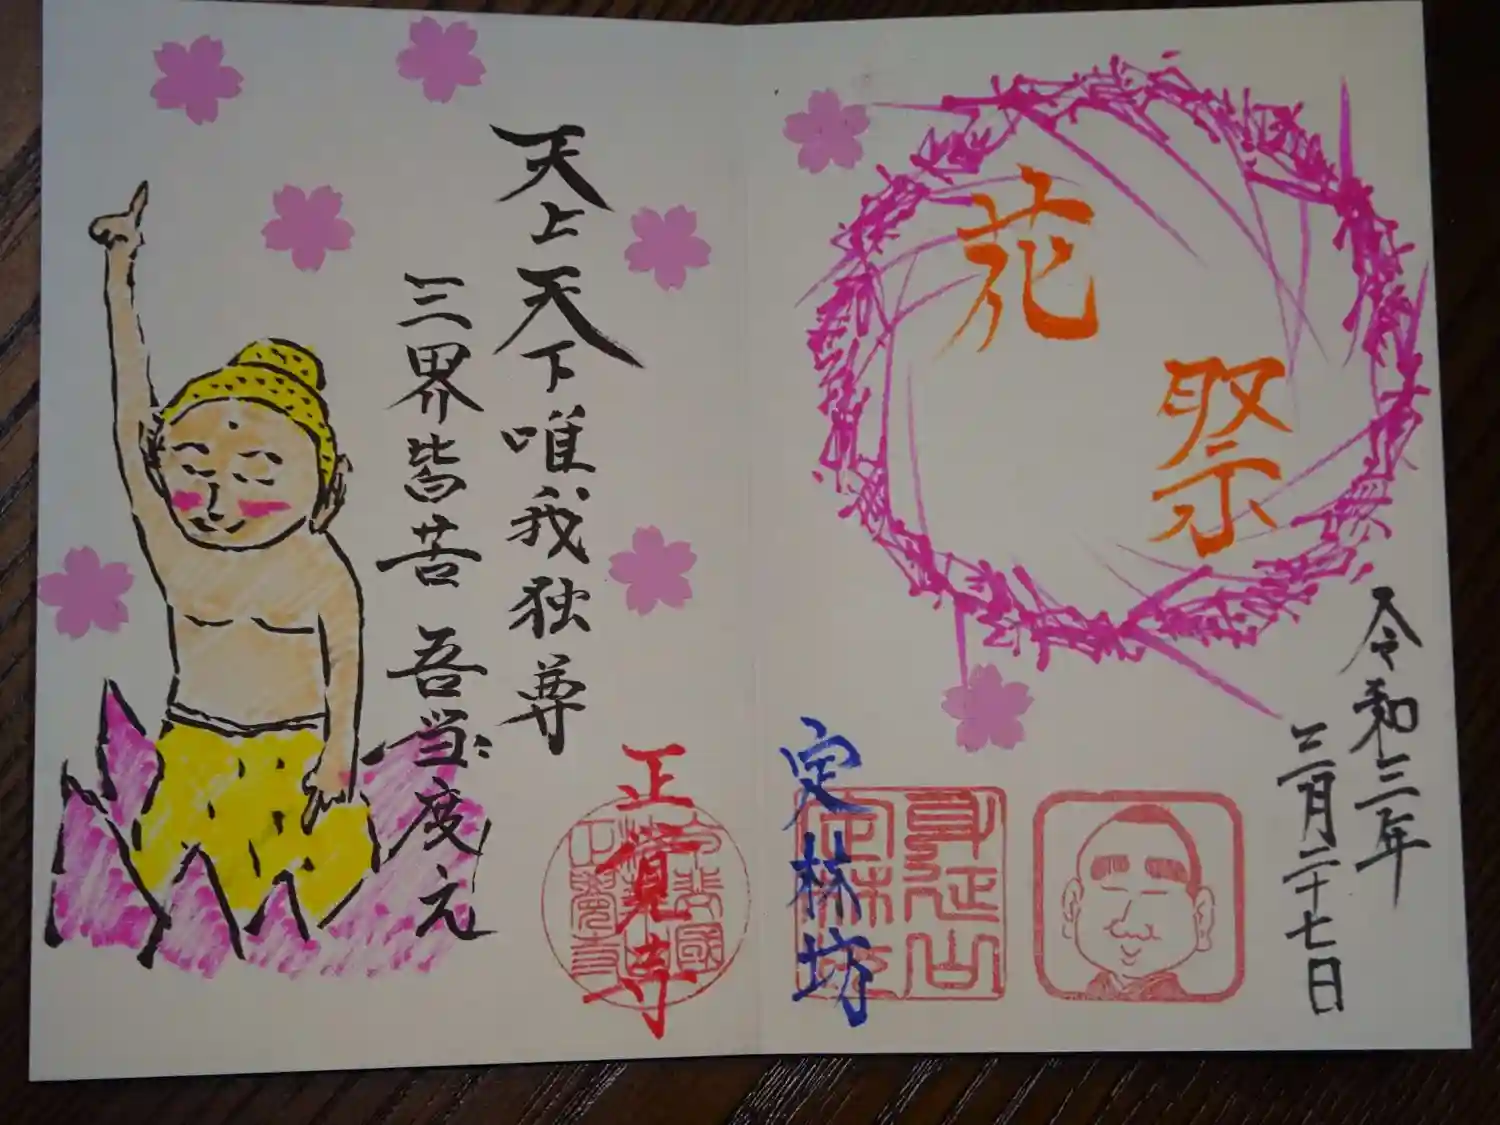 令和三年
三月二十七日
花祭
身延山
定林坊
定林坊
天上天下唯我独尊
三界皆苦 吾当度之
正覚寺